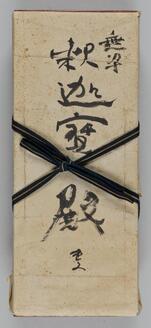 無染
釈迦寶殿